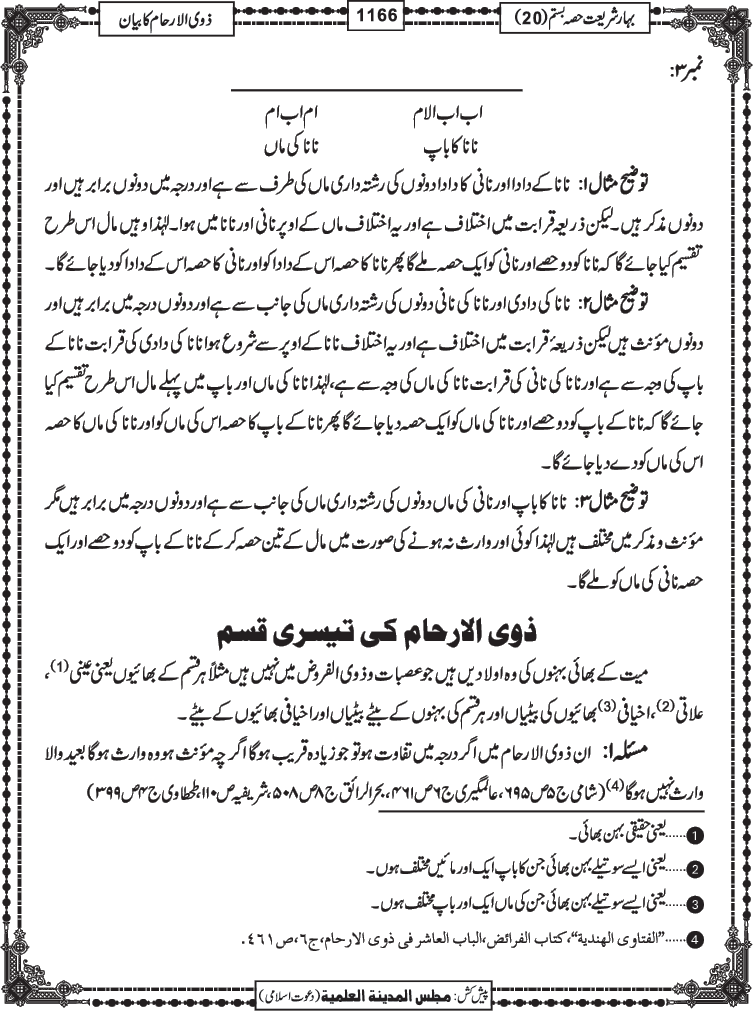 بہار شریعت حصہ بستم (20)
1166
ذوی الارحام کا بیان
نمبر ۳:
اب اب الام ام اب ام
نانا کا باپ نانا کی ماں
توضیح مثال ۱: نانا کے دادا اور نانی کا دادا دونوں کی رشتہ داری ماں کی طرف سے ہے اور درجہ میں دونوں برابر ہیں اور
دونوں مذکر ہیں۔ لیکن ذریعہ قرابت میں اختلاف ہے اور یہ اختلاف ماں کے اوپر نانی اور نانا میں ہوا۔ لہٰذا وہیں مال اس طرح
تقسیم کیا جائے گا کہ نانا کو دو حصے اور نانی کو ایک حصہ ملے گا پھر نانا کا حصہ اس کے دادا کو اور نانی کا حصہ اس کے دادا کو دیا جائے گا۔
توضیح مثال ۲: نانا کی دادی اور نانا کی نانی دونوں کی رشتہ داری ماں کی جانب سے ہے اور دونوں درجہ میں برابر ہیں اور
دونوں مؤنث ہیں لیکن ذریعۂ قرابت میں اختلاف ہے اور یہ اختلاف نانا کے اوپر سے شروع ہوا نانا کی دادی کی قرابت نانا کے
باپ کی وجہ سے ہے اور نانا کی نانی کی قرابت نانا کی ماں کی وجہ سے ہے، لہٰذا نانا کی ماں اور باپ میں پہلے مال اس طرح تقسیم کیا
جائے گا کہ نانا کے باپ کو دو حصے اور نانا کی ماں کو ایک حصہ دیا جائے گا پھر نانا کے باپ کا حصہ اس کی ماں کو اور نانا کی ماں کا حصہ
اس کی ماں کو دے دیا جائے گا۔
توضیح مثال ۳: نانا کا باپ اور نانی کی ماں دونوں کی رشتہ داری ماں کی جانب سے ہے اور دونوں درجہ میں برابر ہیں مگر
مؤنث و مذکر میں مختلف ہیں لہٰذا کوئی اور وارث نہ ہونے کی صورت میں مال کے تین حصہ کر کے نانا کے باپ کو دو حصے اور ایک
حصہ نانی کی ماں کو ملے گا۔
ذوی الارحام کی تیسری قسم
میت کے بھائی بہنوں کی وہ اولادیں ہیں جو عصبات و ذوی الفروض میں نہیں ہیں مثلاً ہر قسم کے بھائیوں یعنی عینی (1)،
علاتی (2)، اخیافی (3) بھائیوں کی بیٹیاں اور ہر قسم کی بہنوں کے بیٹے بیٹیاں اور اخیافی بھائیوں کے بیٹے۔
مسئلہ ۱: ان ذوی الارحام میں اگر درجہ میں تفاوت ہو تو جو زیادہ قریب ہو گا اگرچہ مؤنث ہو وہ وارث ہو گا بعید والا
وارث نہیں ہو گا (4) (شامی ج۵ ص ۶۹۵، عالمگیری ج۶ ص ۴۶۱، بحر الرائق ج۸ ص ۵۰۸، شریفیہ ص ۱۱۰، طحطاوی ج۴ ص ۳۹۹)
1 ......یعنی حقیقی بہن بھائی۔
2 ......یعنی ایسے سوتیلے بہن بھائی جن کا باپ ایک اور مائیں مختلف ہوں۔
3 ......یعنی ایسے سوتیلے بہن بھائی جن کی ماں ایک اور باپ مختلف ہوں۔
4 ......"الفتاوی الھندیة"، کتاب الفرائض، الباب العاشر فی ذوی الارحام، ج۶، ص ٤٦١.
پیش کش: مجلس المدینة العلمیة (دعوت اسلامی)